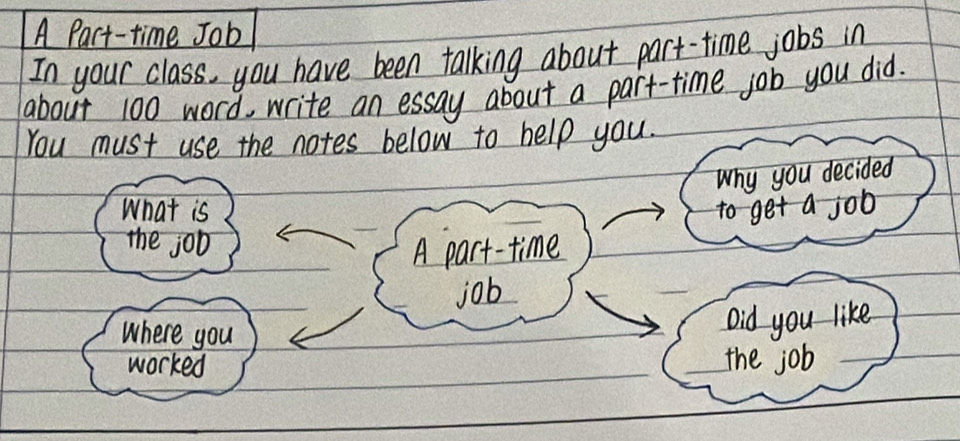 A Part-time Job
In your class, you have been talking about part-time jobs in
about 100 word, write an essay about a part-time job you did.
You must use the notes below to help you.
What is
the job
A part-time
job
Why you decided
to get a job
Where you
worked
Did you like
the job